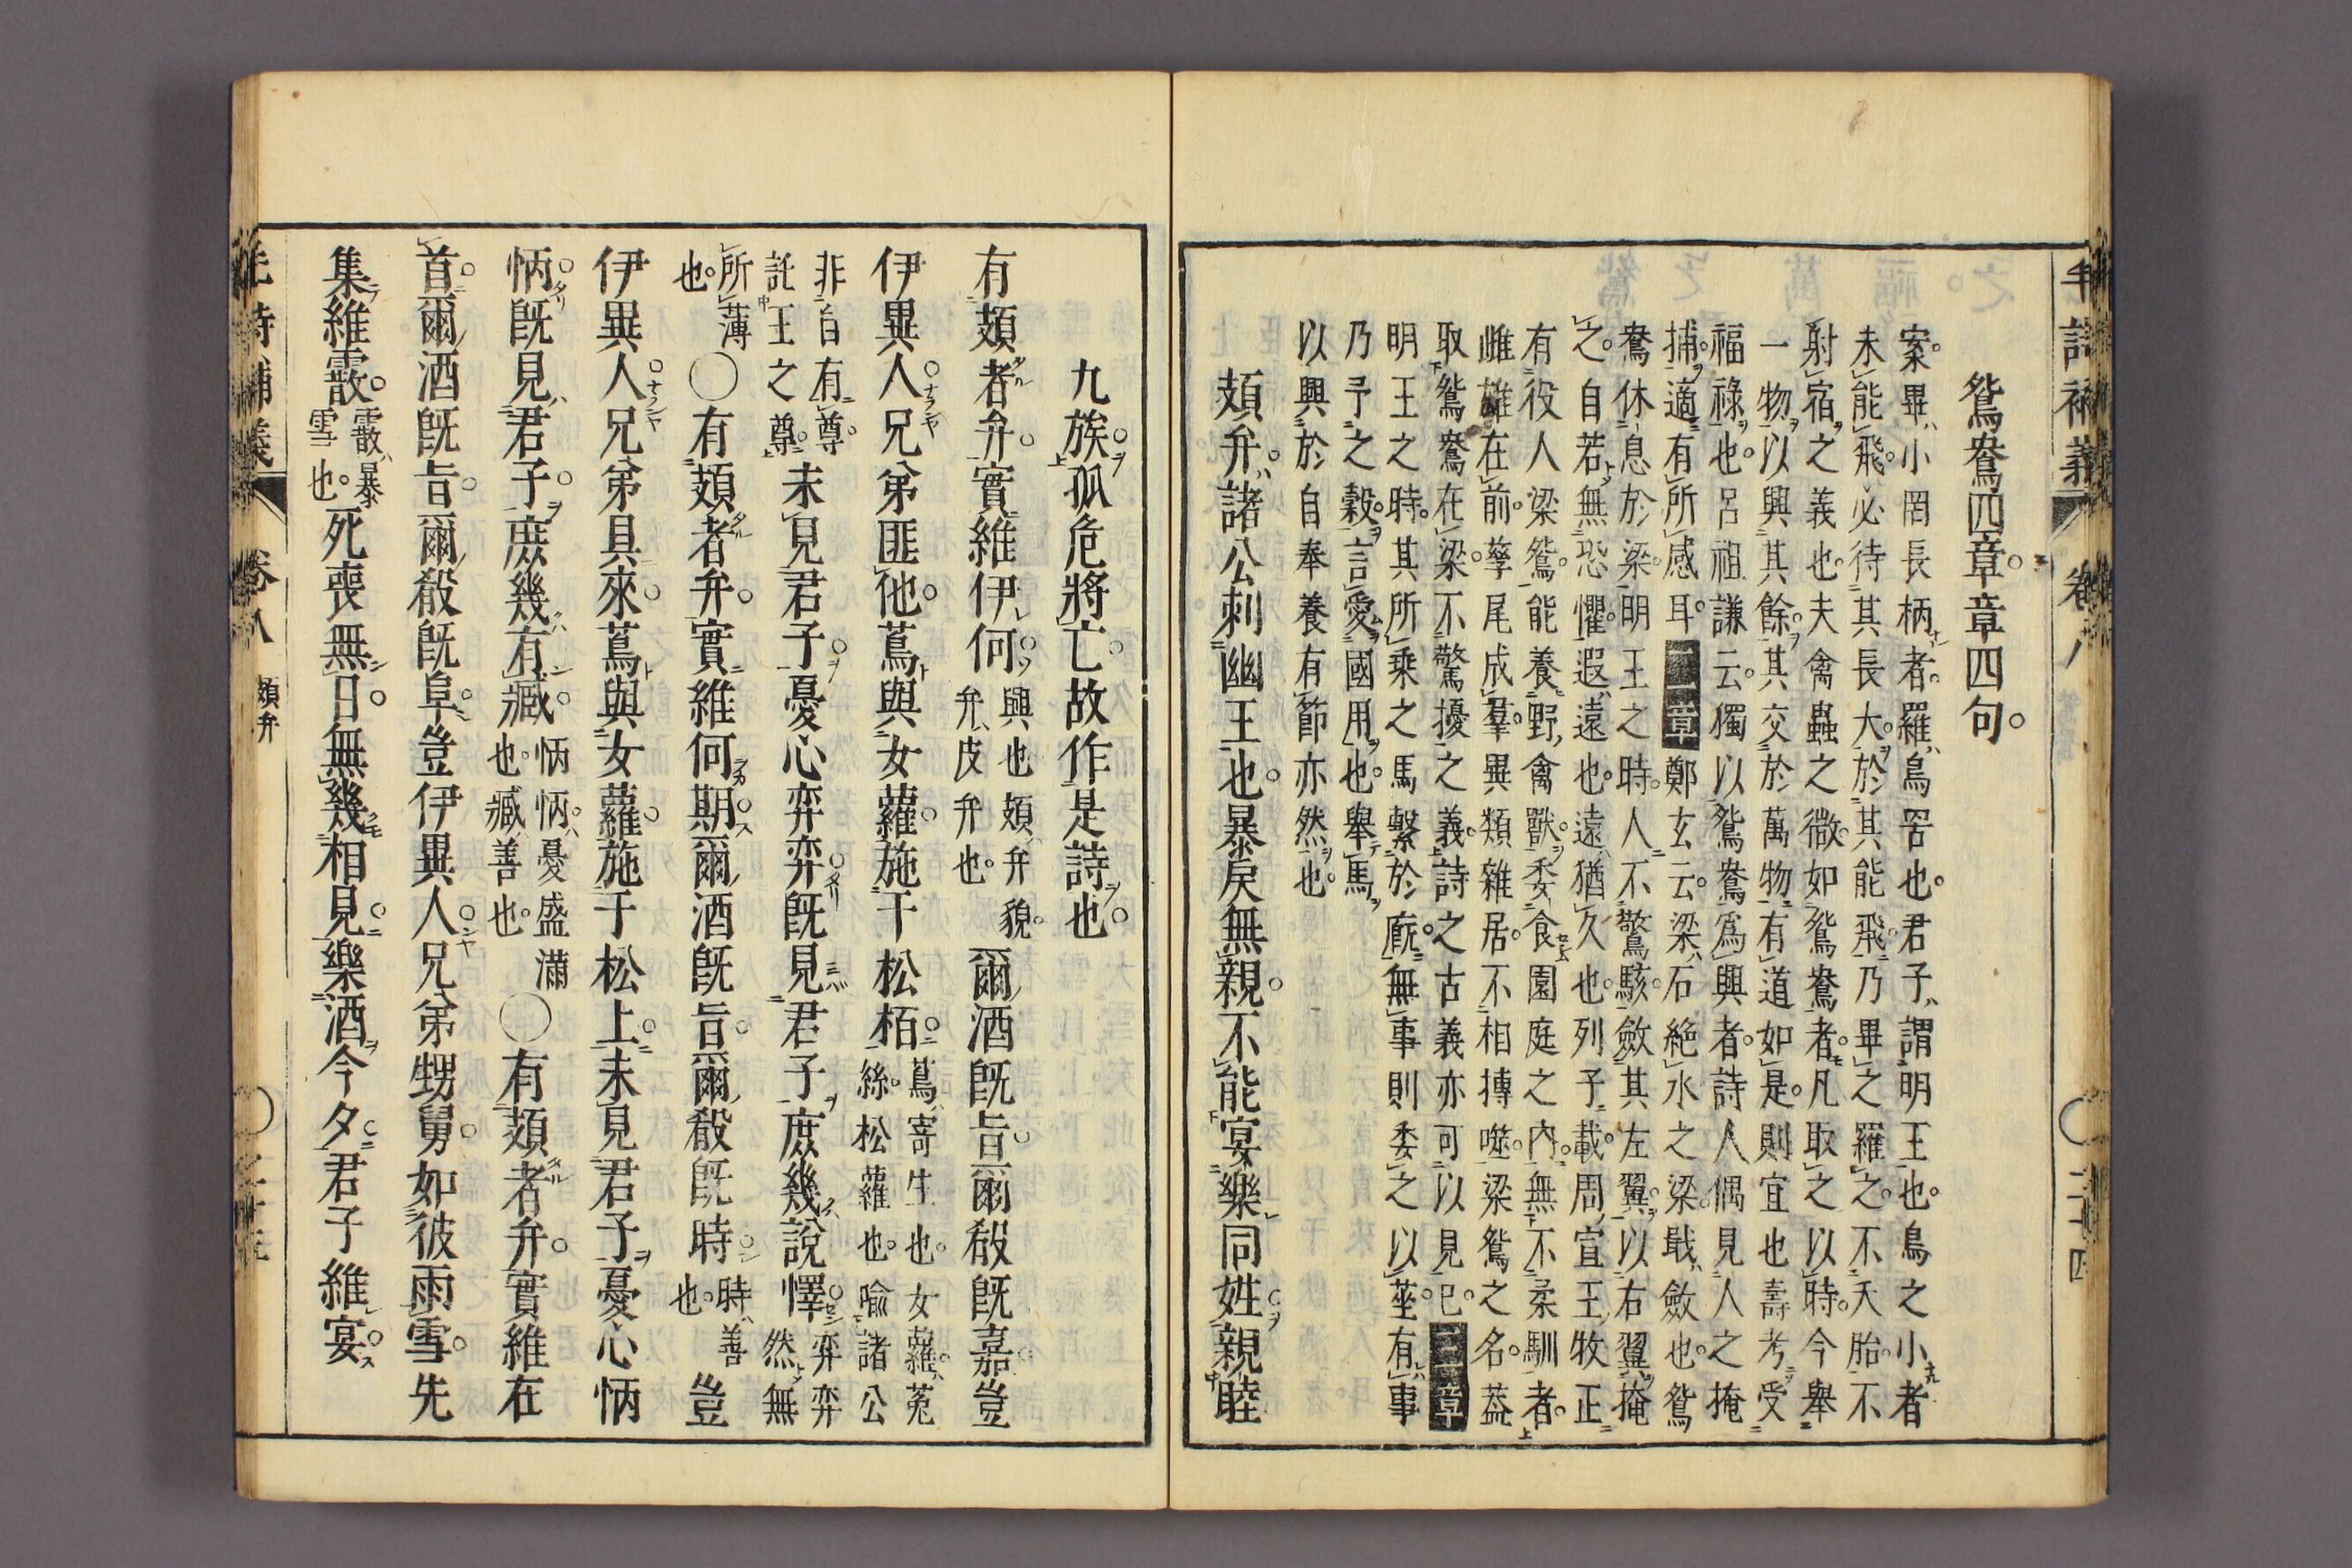 毛詩補義 卷八 二十四
鴛鴦四章章四句
案畢小罔長柄者羅鳥罟也君子謂明王也鳥之小者
未能飛必待其長大於其能飛乃畢之羅之不夭胎不
射宿之義也夫禽蟲之微如鴛鴦者凡取之以時今舉
一物以興其餘其交於萬物有道如是則宜也壽考受
福祿也呂祖謙云獨以鴛鴦爲興者詩人偶見人之掩
捕適有所感耳二章鄭玄云梁石絕水之梁戢斂也鴛
鴦休息於梁明王之時人不驚駭斂其左翼以右翼掩
之自若無恐懼遐遠也遠猶久也列子載周宣王牧正
有役人梁鴛能養野禽獸委食園庭之內無不柔馴者
雌雄在前孳尾成羣異類雜居不相搏噬梁鴛之名葢
取鴛鴦在梁不驚擾之義詩之古義亦可以見已三章
明王之時其所乘之馬繫於廐無事則委之以莝有事
乃予之穀言愛國用也舉馬
以興於自奉養有節亦然也
頍弁諸公刺幽王也暴戾無親不能宴樂同姓親睦
九族孤危將亡故作是詩也
有頍者弁實維伊何興也頍弁貌弁皮弁也爾酒旣旨爾殽旣嘉豈
伊異人兄弟匪他蔦與女蘿施于松栢蔦寄生也女蘿菟絲松蘿也喩諸公
非自有尊託王之尊未見君子憂心弈弈旣見君子庶幾說懌弈弈然無
所薄也○有頍者弁實維何期爾酒旣旨爾殽旣時時善也豈
伊異人兄弟具來蔦與女蘿施于松上未見君子憂心怲
怲旣見君子庶幾有臧怲怲憂盛滿也臧善也○有頍者弁實維在
首爾酒旣旨爾殽旣阜豈伊異人兄弟甥舅如彼雨雪先
集維霰霰暴雪也死喪無日無幾相見樂酒今夕君子維宴
毛詩補義 卷八 頍弁 二十五